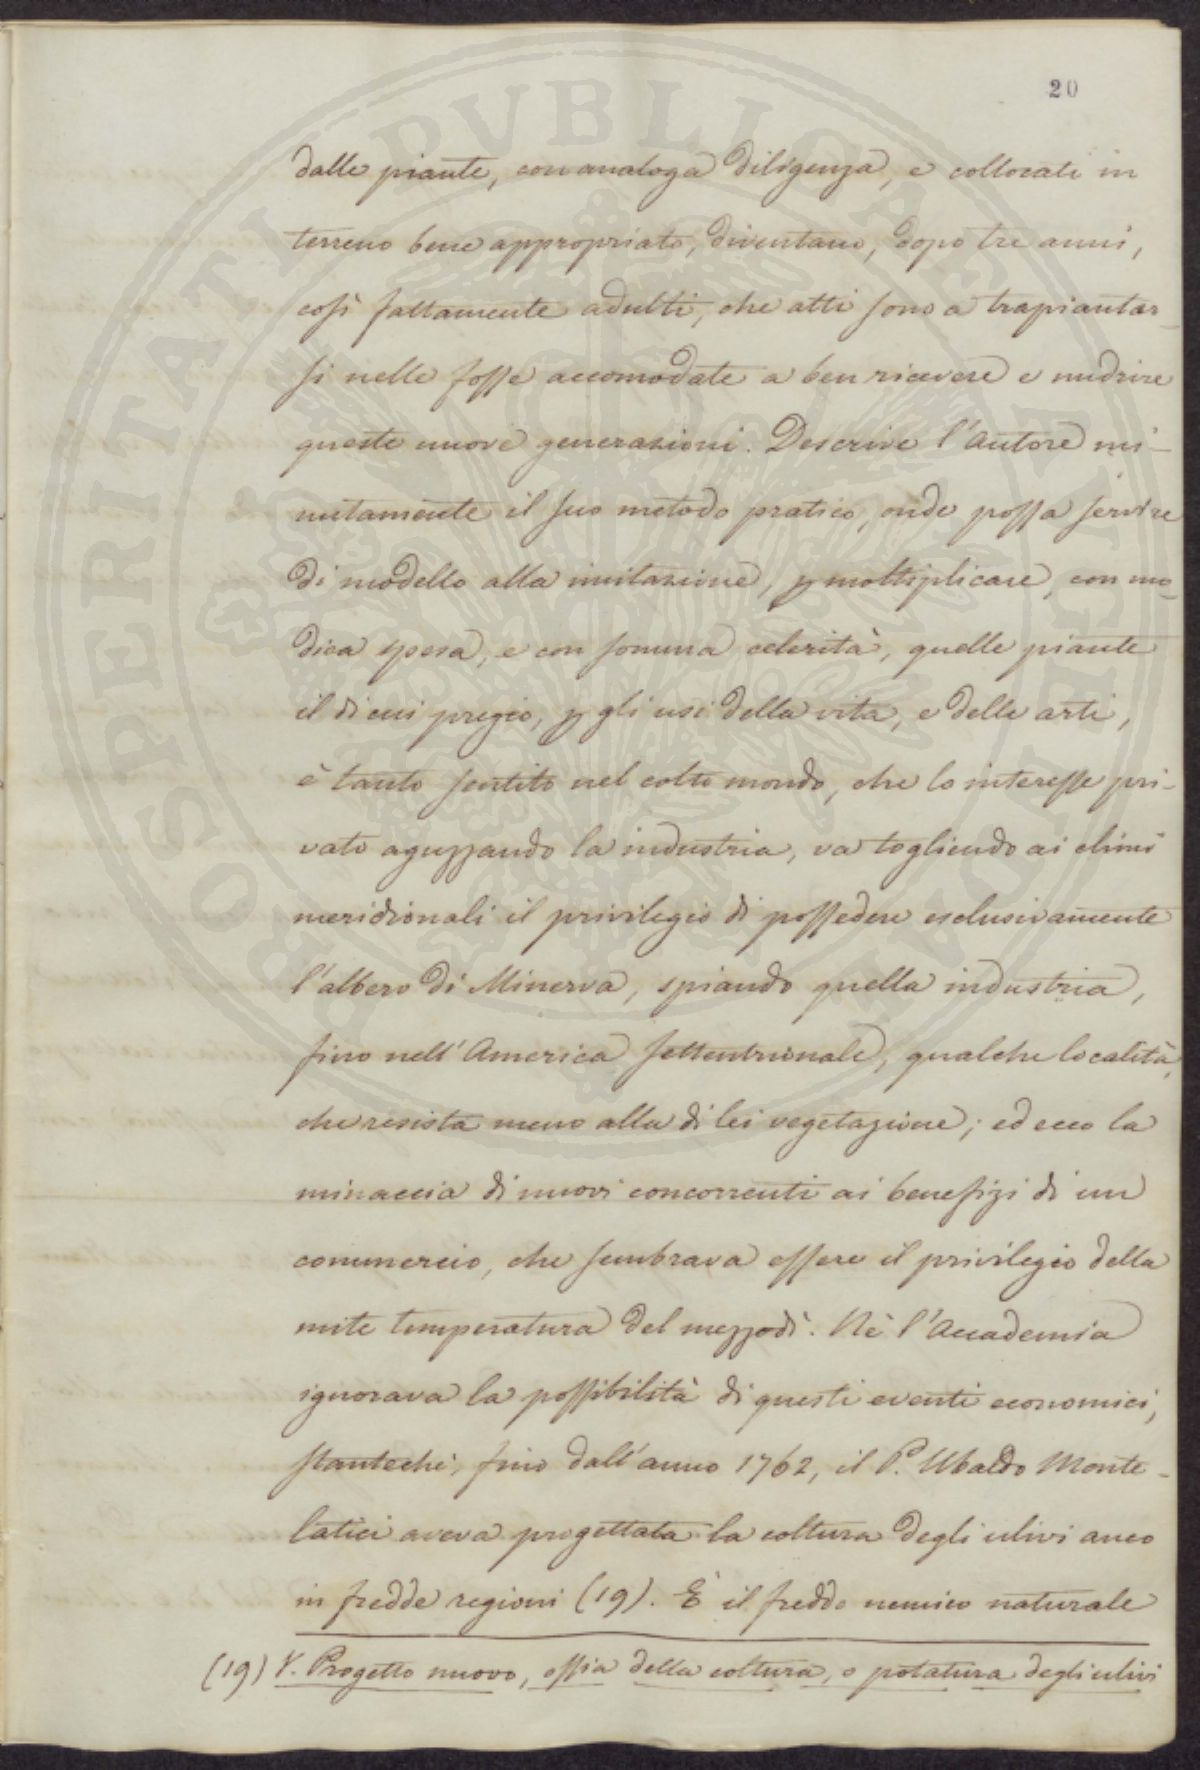 20
dalle piante, con analoga diligenza, e collocati in
terreno bene appropriato, diventano, dopo tre anni,
così fattamente adulti, che atti sono a trapiantar-
si nelle fosse accomodate a ben ricevere e nudrire
queste nuove generazioni. Descrive l'Autore mi-
nutamente il suo metodo pratico, onde possa servire
di modello alla imitazione, p moltiplicare, con mo-
dica spesa, e con somma celerità, quelle piante
il di cui pregio, p gli usi della vita, e delle arti,
è tanto sentito nel colto mondo, che lo interesse pri-
vato aguzzando la industria, va togliendo ai climi
meridionali il privilegio di possedere esclusivamente
l'albero di Minerva, spiando quella industria,
fino nell'America settentrionale, qualche località,
che resista meno alla di lei vegetazione; ed ecco la
minaccia di nuovi concorrenti ai benefizi di un
commercio, che sembrava essere il privilegio della
mite temperatura del mezzodì. Nè l'Accademia
ignorava la possibilità di questi eventi economici,
stantechè, fino dall'anno 1762, il P. Ubaldo Monte-
latici aveva progettata la coltura degli ulivi anco
in fredde regioni (19). È il freddo nemico naturale
(19) V. Progetto nuovo, ossia della coltura, o potatura degli ulivi
PROSPERITATI PVBLICAE AVGENDAE